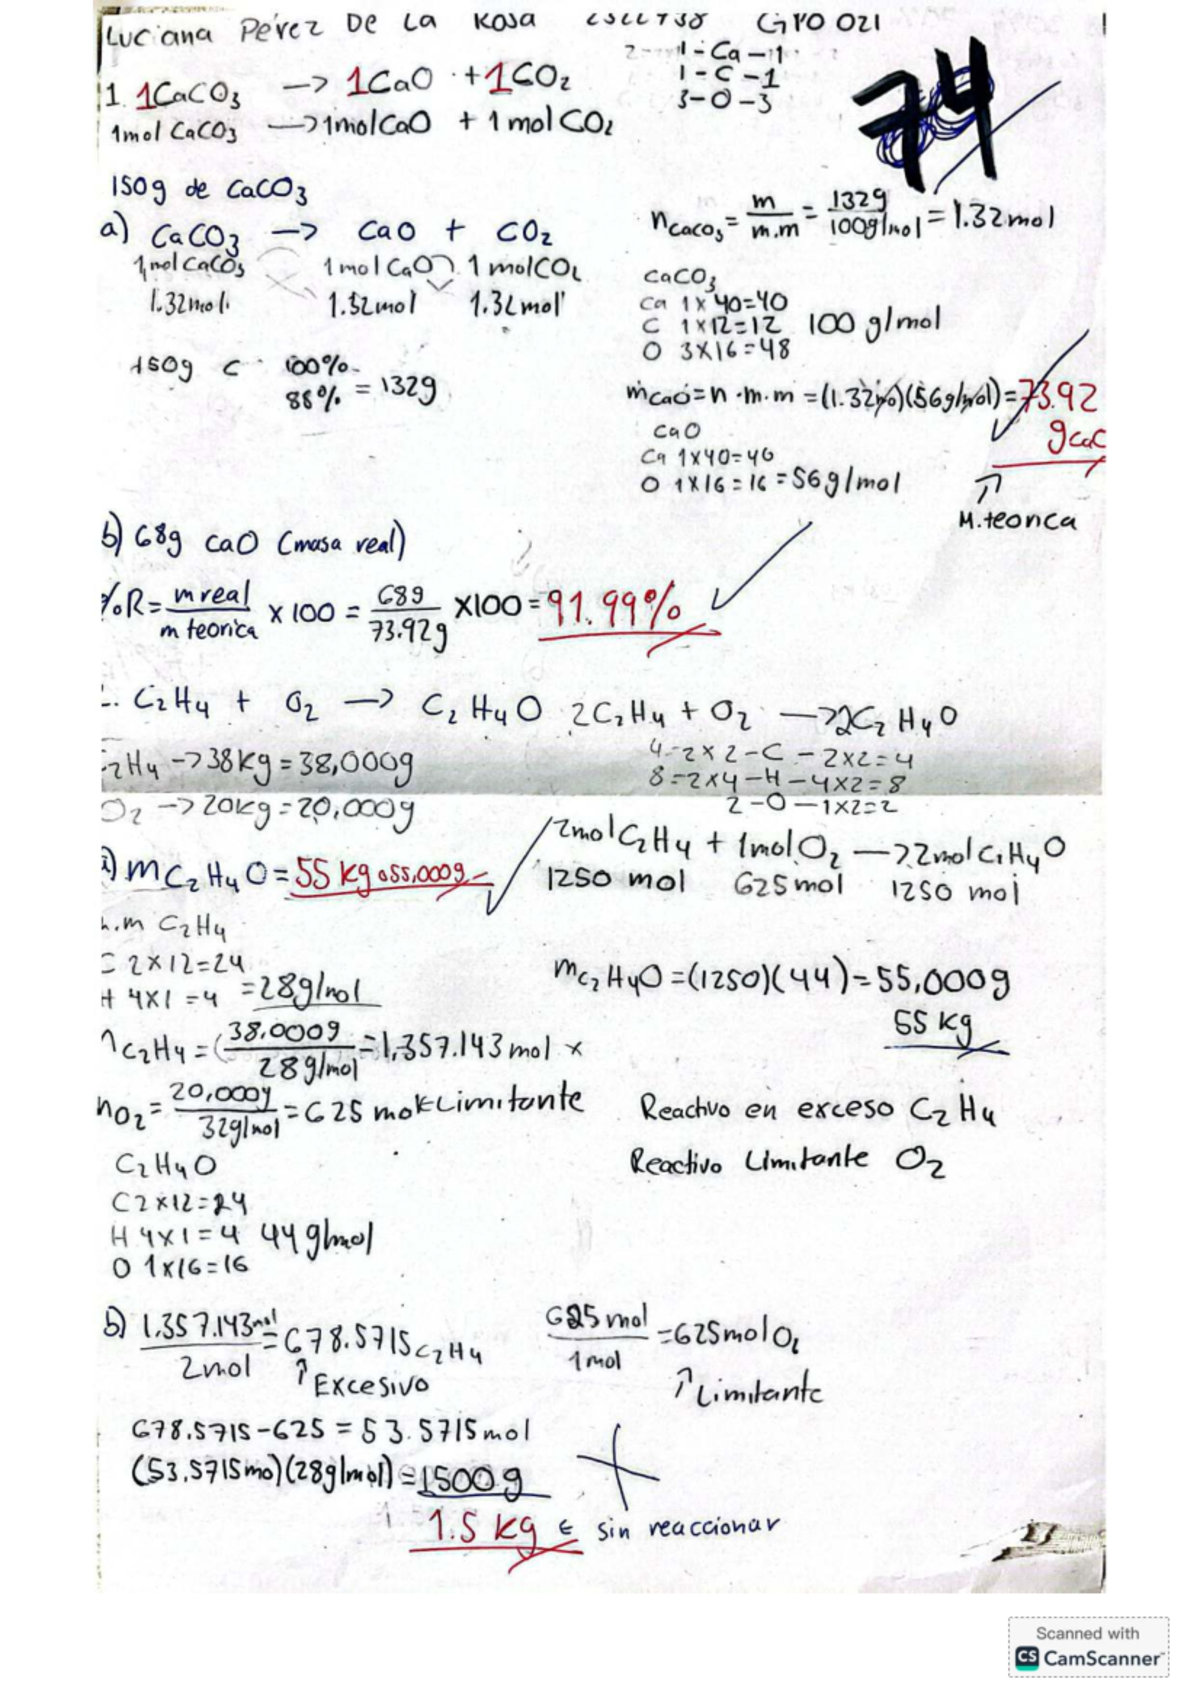 Luciana Pérez De La Rosa GPO 021
1-Ca-1
1-C-1
3-O-3
74
1. 1CaCO3 → 1CaO + 1CO2
1mol CaCO3 → 1molCaO + 1 mol CO2
150g de CaCO3
a) CaCO3 → CaO + CO2
1 mol CaCO3 1 mol CaO 1 molCO2
1.32mol 1.32mol 1.32mol
150g 100%
88% = 132g
nCaCO3 = m/m.m = 132g/100g/mol = 1.32mol
CaCO3
Ca 1×40=40
C 1×12=12 100 g/mol
O 3×16=48
mCaO=n·m.m =(1.32mol)(56g/mol)=73.92
CaO
Ca 1×40=40
O 1×16=16 =56g/mol
M.teorica
b) 68g CaO (masa real)
%R= m real/m teorica × 100 = 68g/73.92g ×100 = 91.99%
C2H4 + O2 → C2H4O 2C2H4 + O2 → 2C2H4O
4-2×2-C-2×2=4
8=2×4-H-4×2=8
2-O-1×2=2
C2H4 → 38kg = 38,000g
O2 → 20kg = 20,000g
2molC2H4 + 1molO2 → 2molC2H4O
1250 mol 625mol 1250 mol
a) mC2H4O=55 kg o 55,000g
m.m C2H4
C 2×12=24
H 4×1=4 =28g/mol
mC2H4O=(1250)(44)=55,000g
55 kg
nC2H4=(38,000g/28g/mol=1,357.143 mol ×
nO2=20,000g/32g/mol=625 mol←Limitante
Reactivo en exceso C2H4
Reactivo Limitante O2
C2H4O
C2×12=24
H 4×1=4 44g/mol
O 1×16=16
b) 1,357.143mol/2mol=678.5715C2H4
↑Excesivo
625mol/1mol=625molO2
↑Limitante
678.5715-625=53.5715mol
(53.5715mo)(28g/mol)=1500g
1.5 kg ← sin reaccionar
Scanned with
CS CamScanner